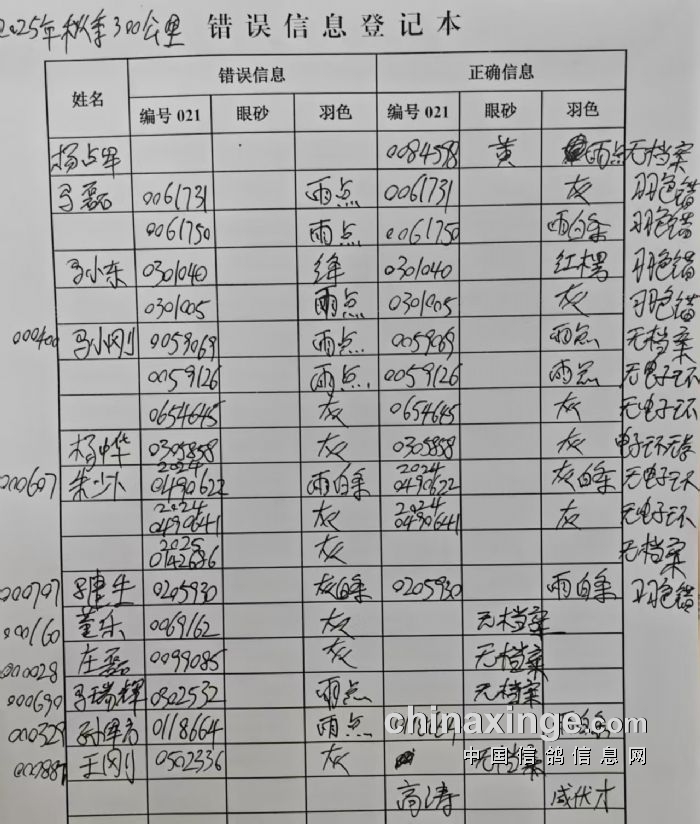 2025年秋季300公里 错误信息登记本
姓名 错误信息 正确信息
编号 021 眼砂 羽色 编号 021 眼砂 羽色
杨占军 0084598 黄 雨点 无档案
马磊 0061731 雨点 0061731 灰 羽色错
0061750 雨点 0061750 雨白条 羽色错
马小东 0301040 绛 0301040 红楞 羽色错
0301005 雨点 0301005 灰 羽色错
000400 马小刚 0059069 雨点 0059069 雨点 无档案
0059126 雨点 0059126 雨点 无电子环
0654645 灰 0654645 灰 无电子环
杨中华 0305858 灰 0305858 灰 电子环
000607 2024 2024
0490622 雨白条 0490622 灰白条 无电子环
2024 2024
0490641 灰 0490641 灰 无电子环
2025
灰 无档案
000707 0205930 灰白条 0205930 雨白条 羽色错
000160 董乐 0069162 灰 无档案
000028 左磊 0099085 灰 无档案
000690 马瑞辉 0302532 雨点 无档案
000329 0118664 雨点
王刚 0502336 灰 无档案
高涛
chinaxinge.com
中国信鸽信息网